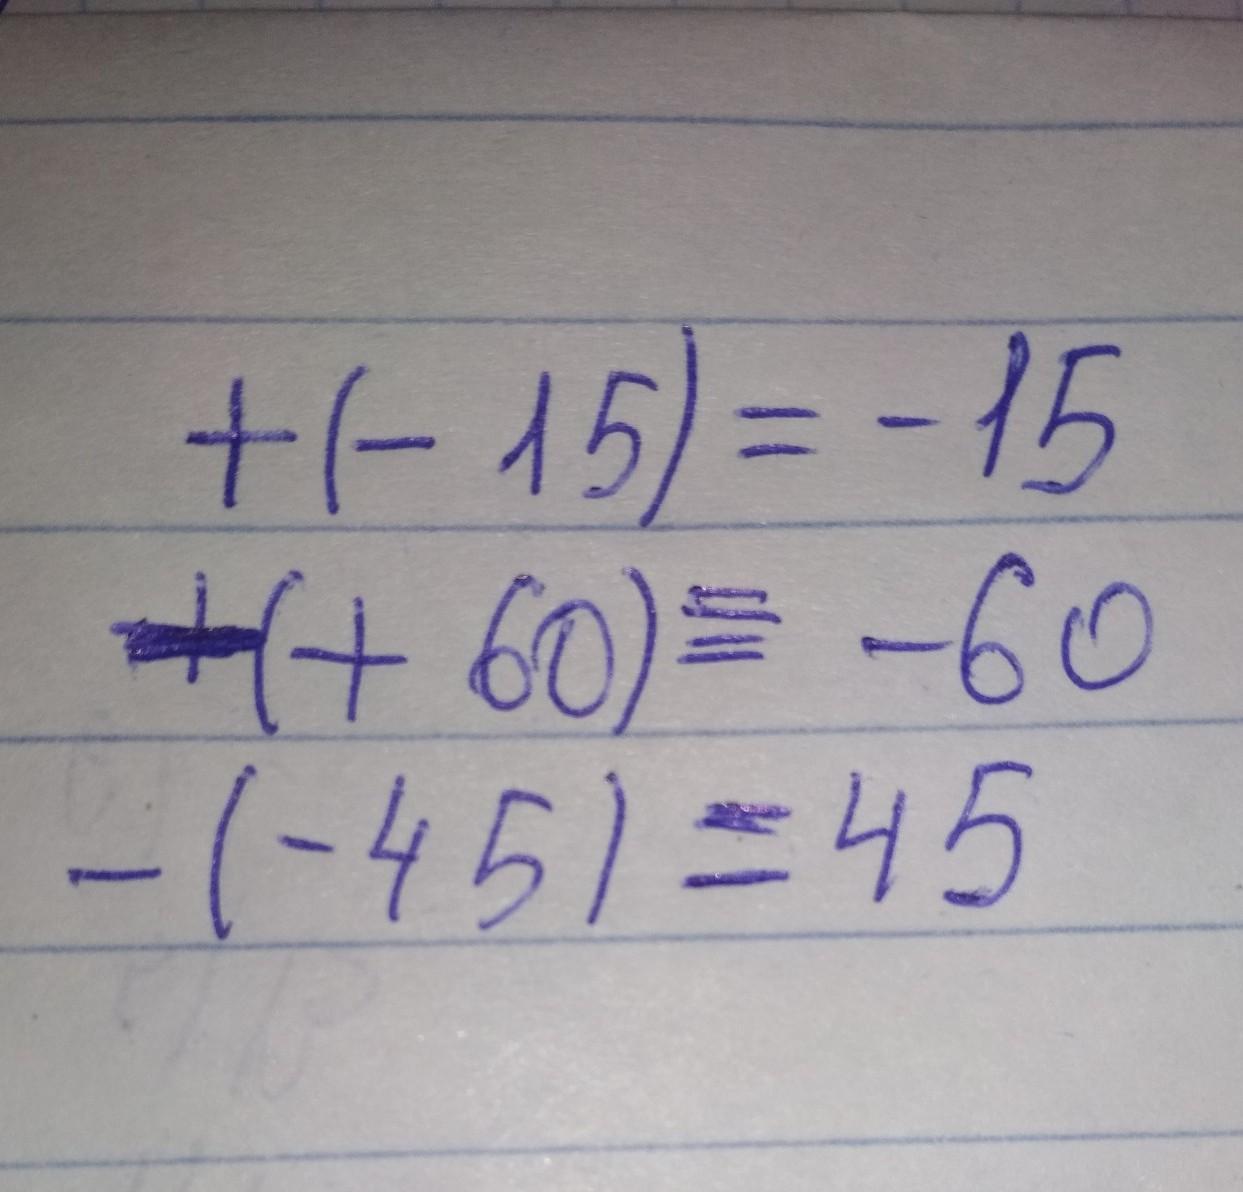 +(- 15) = -15
-(+ 60) = -60
-(-45) = 45